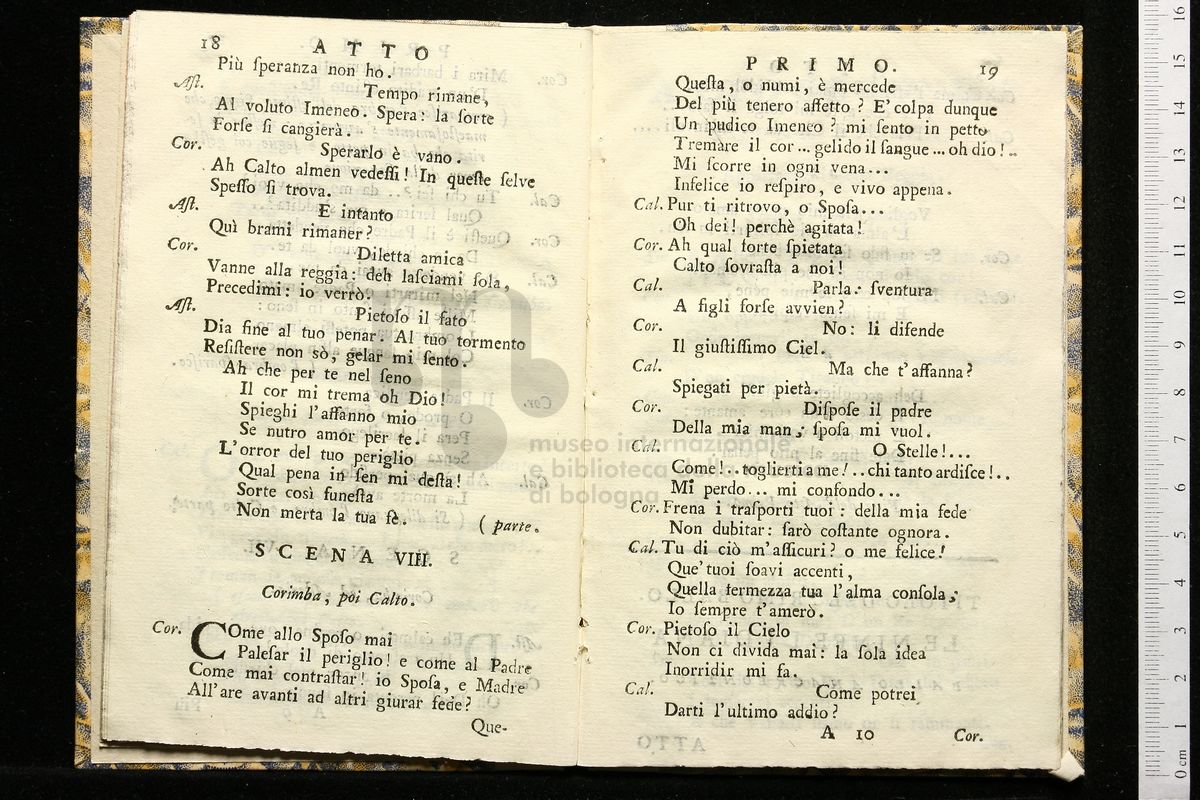 18 ATTO
Più ſperanza non ho.
Aſt. Tempo rimane,
Al voluto Imeneo. Spera: la ſorte
Forſe ſi cangierà.
Cor. Sperarlo è vano.
Ah Calto almen vedeſſi! In queſte ſelve
Speſſo ſi trova.
Aſt. E intanto
Quì brami rimaner?
Cor. Diletta amica
Vanne alla reggia: deh laſciami ſola,
Precedimi: io verrò.
Aſt. Pietoſo il fato
Dia fine al tuo penar. Al tuo tormento
Reſiſtere non sò, gelar mi ſento.
Ah che per te nel ſeno
Il cor mi trema oh Dio!
Spieghi l'affanno mio
Se nutro amor per te.
L'orror del tuo periglio
Qual pena in ſen mi deſta!
Sorte così funeſta
Non merta la tua fè. ( parte.
SCENA VIII.
Corimba, poi Calto.
Cor. COme allo Spoſo mai
Paleſar il periglio! e come al Padre
Come mai contraſtar! io Spoſa, e Madre
All'are avanti ad altri giurar fede?
Que-
PRIMO. 19
Queſta, o numi, è mercede
Del più tenero affetto? E' colpa dunque
Un pudico Imeneo? mi ſento in petto
Tremare il cor... gelido il ſangue... oh dio!..
Mi ſcorre in ogni vena...
Infelice io reſpiro, e vivo appena.
Cal. Pur ti ritrovo, o Spoſa...
Oh dei! perchè agitata!
Cor. Ah qual ſorte ſpietata
Calto ſovraſta a noi!
Cal. Parla: ſventura
A figli forſe avvien?
Cor. No: li difende
Il giuſtiſſimo Ciel.
Cal. Ma che t'affanna?
Spiegati per pietà.
Cor. Diſpoſe il padre
Della mia man; ſpoſa mi vuol.
Cal. O Stelle!...
Come!..toglierti a me!..chi tanto ardiſce!..
Mi perdo... mi confondo...
Cor. Frena i traſporti tuoi: della mia fede
Non dubitar: ſarò coſtante ognora.
Cal. Tu di ciò m'aſſicuri? o me felice!
Que' tuoi ſoavi accenti,
Quella fermezza tua l'alma conſola;
Io ſempre t'amerò.
Cor. Pietoſo il Cielo
Non ci divida mai: la ſola idea
Inorridir mi fa.
Cal. Come potrei
Darti l'ultimo addio?
A 10 Cor.
museo internazionale
e biblioteca
di bologna
0 cm 1 2 3 4 5 6 7 8 9 10 11 12 13 14 15 16